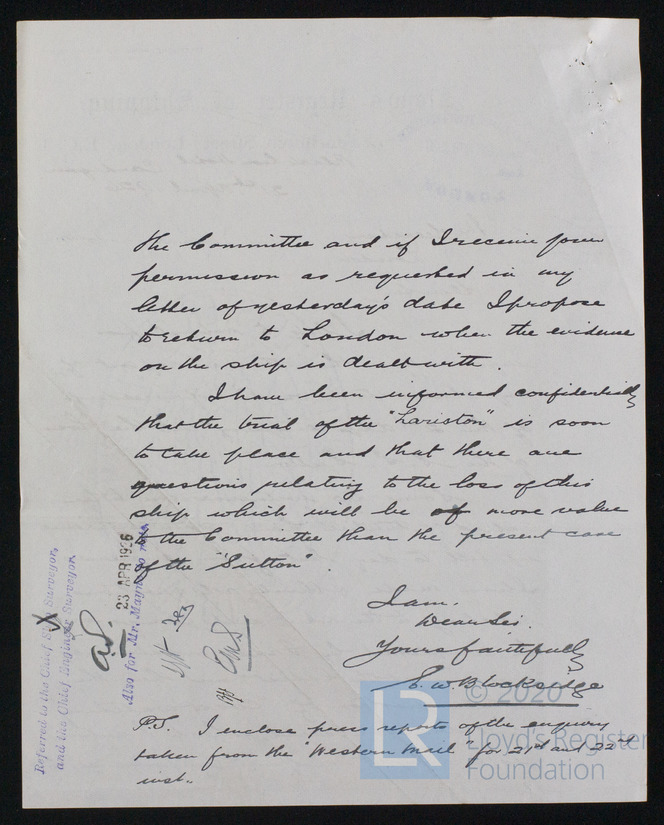 the Committee and if I receive your
permission as requested in my
letter of yesterday's date I propose
to return to London when the evidence
on the ship is dealt with.
I have been informed confidentially
that the trial of the "Lariston" is soon
to take place and that there are
questions relating to the loss of this
ship which will be of more value
to the Committee than the present case
of the "Sutton".
I am.
Dear Sir.
Yours faithfully
E. W. Blocksidge
P.S. I enclose press repots of the enquiry
taken from the "Western Mail" for 21st and 22nd
inst.
Referred to the Chief Ship Surveyor,
and the Chief Engineer Surveyor.
23 APR 1926
Also for Mr.
LR
© 2020
Lloyd's Register
Foundation